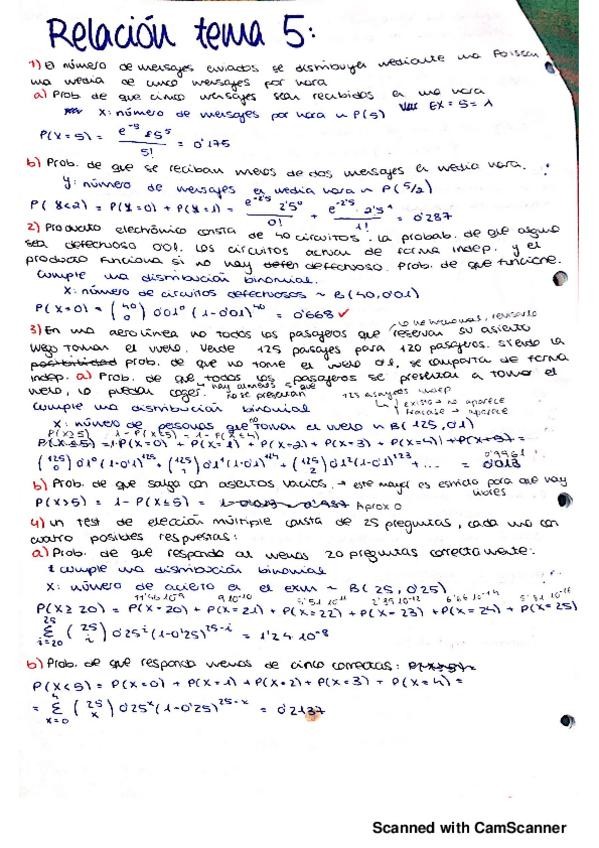 Relación tema 5:
1) El número de mensajes enviados se distribuyen mediante una Poisson
una media de cinco mensajes por hora
a) Prob. de que cinco mensajes sean recibidos en una hora
X: número de mensajes por hora ~ P(5) EX = 5 = λ
P(X=5) = e^-5 · 5^5 / 5! = 0'175
b) Prob. de que se reciban menos de dos mensajes en media hora.
Y: número de mensajes en media hora ~ P(5/2)
P(Y<2) = P(Y=0) + P(Y=1) = e^-2'5 2'5^0 / 0! + e^-2'5 · 2'5^1 / 1! = 0'287
2) Producto electrónico consta de 40 circuitos. La probab. de que alguno
sea defectuoso 0'01. Los circuitos actuan de forma indep. y el
producto funciona si no hay defectuoso. Prob. de que funcione.
Cumple una distribución binomial.
X: número de circuitos defectuosos ~ B(40, 0'01)
P(X=0) = (40 0) 0'01^0 (1-0'01)^40 = 0'668 ✓
3) En una aerolínea no todos los pasajeros que reservan su asiento
luego toman el vuelo. Vende 125 pasajes para 120 pasajeros. Siendo la
posibilidad prob. de que no tome el vuelo 0'1, se comporta de forma
indep. a) Prob. de que todos los pasajeros se presentan a tomar el
vuelo, lo puedan coger. no se presentan 125 asientos indep
éxito → no aparece
fracaso → aparece
Cumple una distribución binomial
X: número de personas que no toman el vuelo ~ B(125, 0'1)
P(X≥5) = 1 - P(X<5) = 1 - P(X≤4)
P(X≤5) = P(X=0) + P(X=1) + P(X=2) + P(X=3) + P(X=4) + P(X=5) =
(125 0) 0'1^0 (1-0'1)^125 + (125 1) 0'1^1 (1-0'1)^124 + (125 2) 0'1^2 (1-0'1)^123 + ... = 0'9961
b) Prob. de que salga con asientos vacíos. → este mayor es estricto para que hay
libres
P(X>5) = 1 - P(X≤5) = Aprox 0
4) Un test de elección múltiple consta de 25 preguntas, cada una con
cuatro posibles respuestas:
a) Prob. de que responda al menos 20 preguntas correctamente.
Cumple una distribución binomial
X: número de acierto en el exam ~ B(25, 0'25)
P(X≥20) = P(X=20) + P(X=21) + P(X=22) + P(X=23) + P(X=24) + P(X=25)
25 Σ i=20 (25 i) 0'25^i (1-0'25)^25-i = 1'24·10^-8
b) Prob. de que responda menos de cinco correctas:
P(X<5) = P(X=0) + P(X=1) + P(X=2) + P(X=3) + P(X=4) =
= 4 Σ x=0 (25 x) 0'25^x (1-0'25)^25-x = 0'2137
Scanned with CamScanner